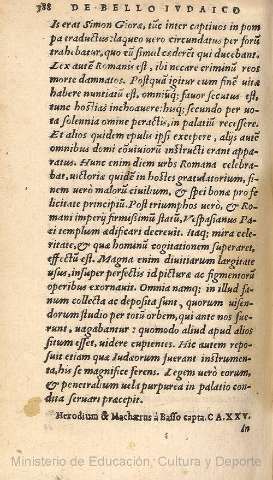 388 DE BELLO IVDAICO
Is erat Simon Giora, tũc inter captiuos in pom
pa traductus: laqueo vero circundatus per forũ
trahebatur, quo eũ simul cæderẽt qui ducebant.
Lex autẽ Romanis est, ibi necare criminũ reos
morte damnatos. Postquã igitur eum finẽ vitæ
habere nuntiatũ est, omniũq; fauor secutus est,
tunc hostias inchoauere: husq; secundo per uo-
ta solennia omine peractis, in palatiũ recessere.
Et alios quidem epulo ipsi excepere, alijs autẽ
omnibus domi cõuiuiorũ instructi erant appa
ratus. Hunc enim diem urbs Romana celebra-
bat, uictoriæ quidẽ in hostes gratulatorium, fi-
nem verò malorũ ciuilium, & spei bonæ pro fe
licitate principiũ. Post triumphos verò, & Ro
mani imperij firmissimũ statũ, Vespasianus Pa
ci templum ædificari decreuit. Itaq; mira cele-
ritate, & quæ hominũ cogitationem superaret,
effectũ est. Magna enim diuitiarum largitate
usus, insuper perfectis id picturæ ac figmentorũ
operibus exornauit. Omnia namq; in illud fa-
num collecta ac deposita sunt, quorum uisen-
dorum studio per totũ orbem, qui ante nos fue-
runt, uagabantur: quomodo aliud apud alios
situm esset, videre cupientes. Hic autem repo-
suit etiam quæ Iudæorum fuerant instrumen-
ta, his se magnifice ferens. Legem verò eorum,
& penetralium uela purpurea in palatio con-
dita seruari præcepit.
Herodium & Machærus à Basso capta. CA. XXV.
In
Ministerio de Educación, Cultura y Deporte